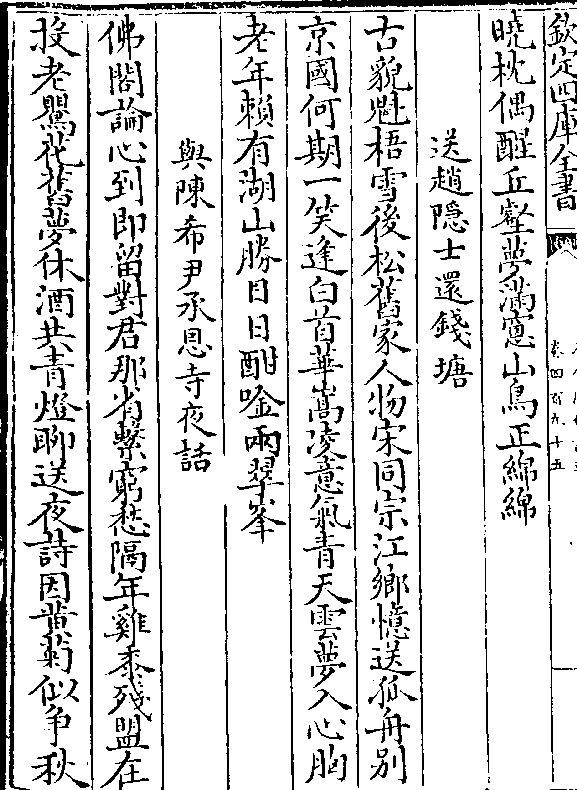 欽定四庫全書
卷四百九十五
曉枕偶醒丘壑夢滿窓山鳥正綿綿
送趙隠士還錢塘
古貌魁梧雪後松舊家人物宋同宗江鄉憶送孤舟别
京國何期一笑逢白首華嵩凌意氣青天雲夢入心胸
老年賴有湖山勝日日酣唫兩翠峯
與陳希尹承恩寺夜話
佛閣論心到即留對君那省繫窮愁隔年雞黍殘盟在
投老鶯花舊夢休酒共青燈聊送夜詩因黄菊似争秋